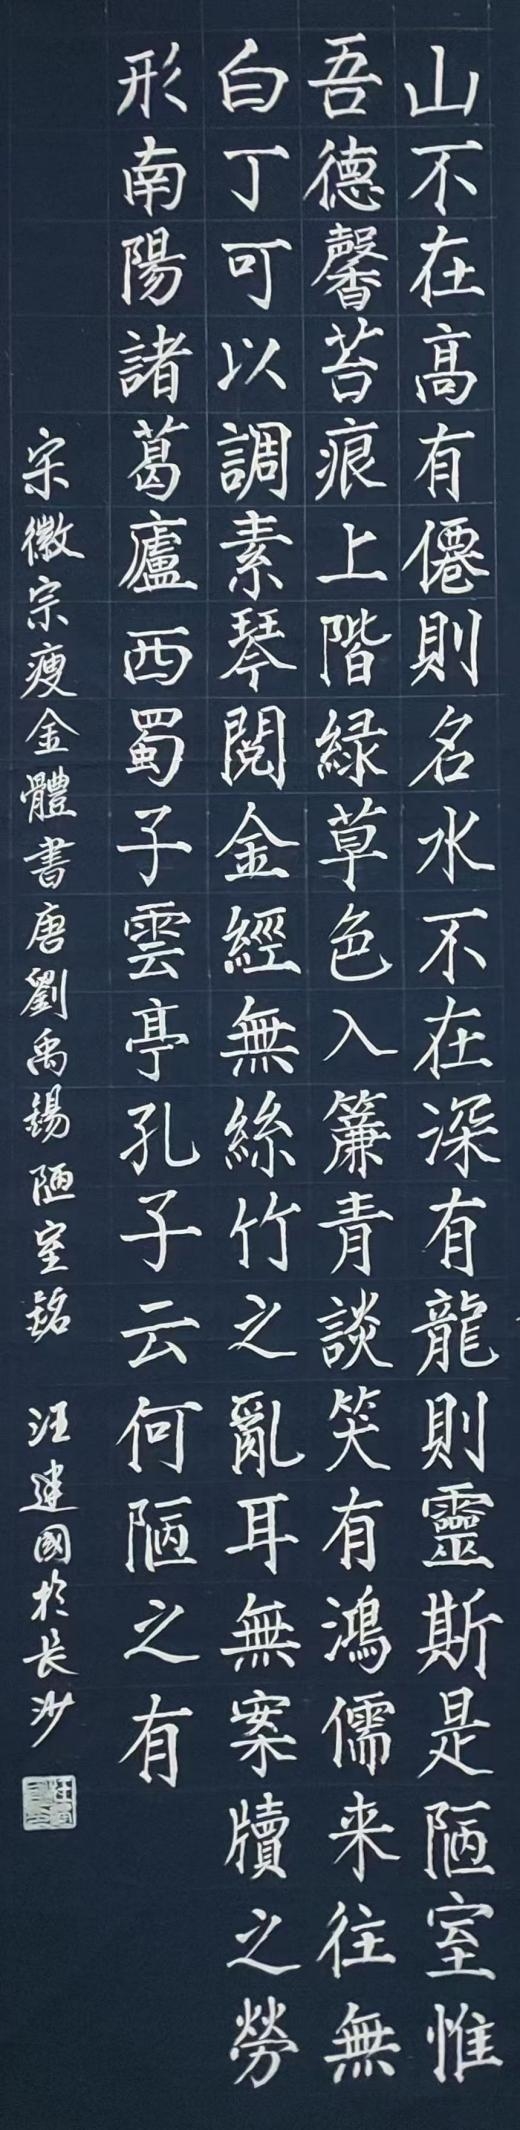 山不在高有僊則名水不在深有龍則靈斯是陋室惟
吾德馨苔痕上階緑草色入簾青談笑有鴻儒来往無
白丁可以調素琴閲金經無絲竹之亂耳無案牘之勞
形南陽諸葛廬西蜀子雲亭孔子云何陋之有
宋徽宗瘦金體書唐劉禹錫陋室銘 汪建國於长沙